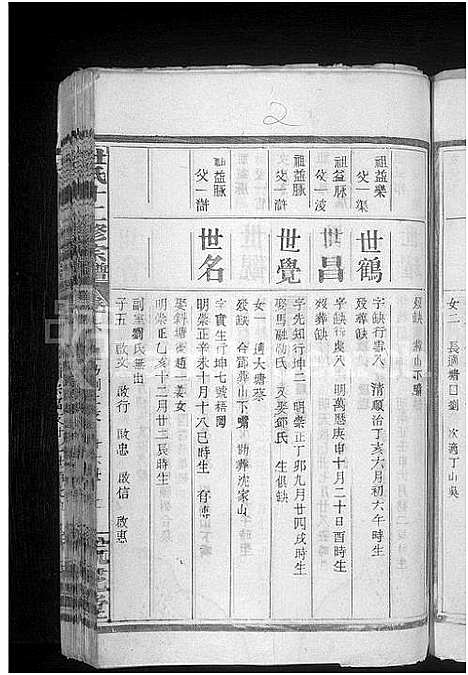 2
女二 長適塘口劉 次適丁山吳
歿缺 葬山下嘴
祖益樂
父一渠
世鶴
字缺行壽八 清順治丁亥六月初六午時生
歿葬缺
祖益脉
父一浚
世昌
字缺行奥八 明萬懸庚申十月二十日酉時生
歿葬缺
祖益脉
父一滸
世覺
字先知行坤二 明崇正丁卯九月廿四戌時生
娶馬融勒氏 又娶鄧氏 生俱缺
女一 適大塘蔡
歿缺 合鄧葬山下嘴 勒葬沈家山
益脉
父一滸
世名
字實生行坤七號梧岡
明崇正辛未十月十八巳時生 有傳
娶斜塘秦趙一姜女
明崇正乙亥十二月廿二辰時生
副室劉氏無出
子五 啟文 啟行 啟忠 啟信 啟惠
氏十二修宗譜